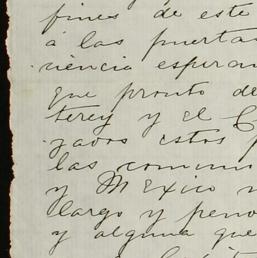 fines de este
á las puertas
viencia esperan
que pronto de
terey y el C
zados estos p
las comuni
y México n
largo y peno
y alguna que